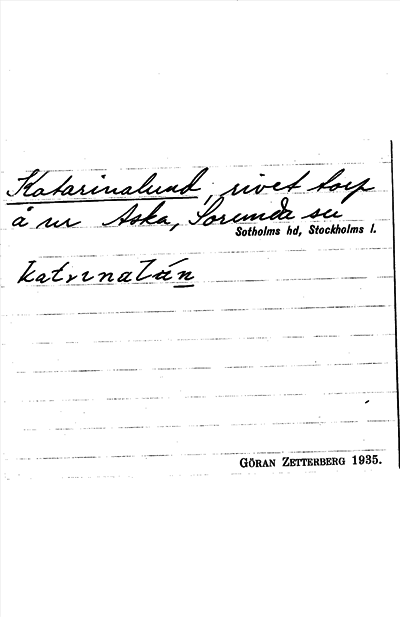 Katarinalund, rivet torp
å nr Aska, Sorunda sn
Sotholms hd, Stockholms l.
katrinalún
GÖRAN ZETTERBERG 1935.